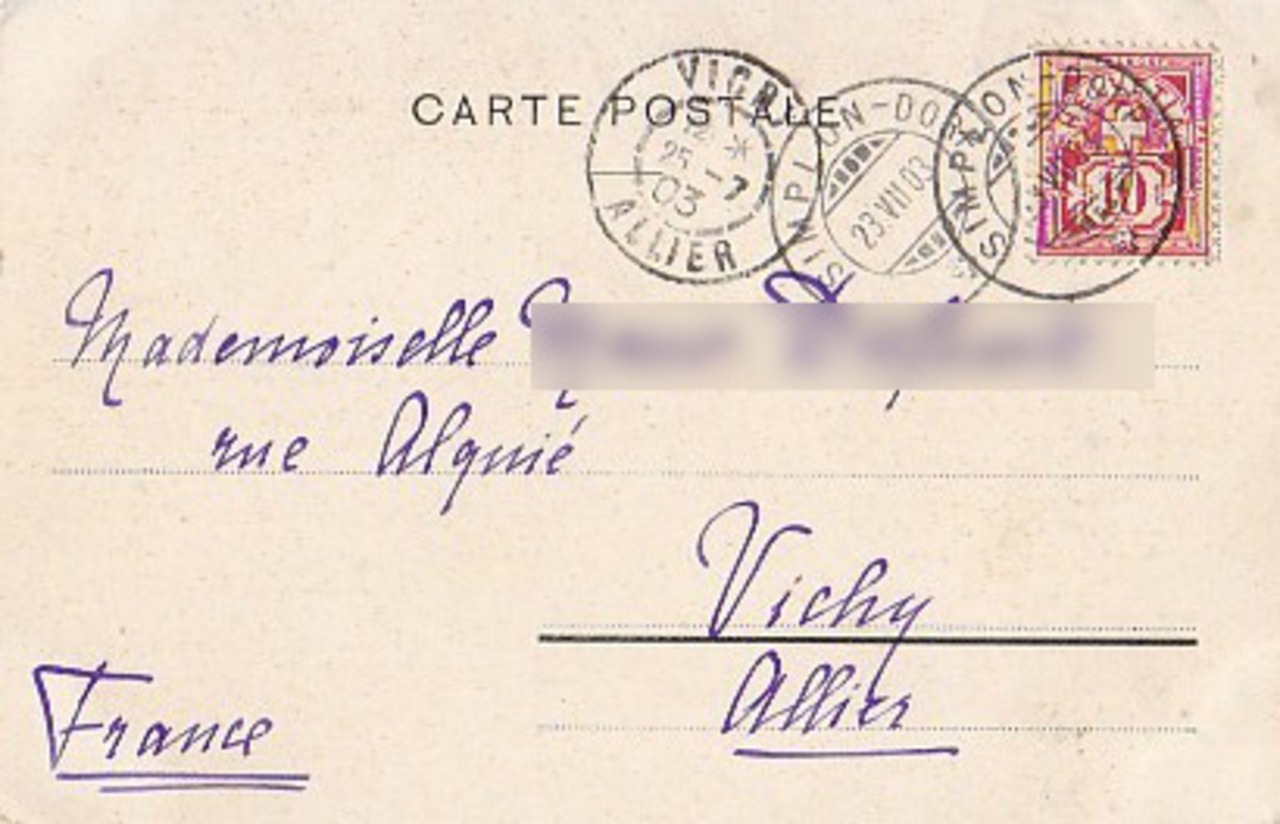 CARTE POSTALE
VICHY
25
03
ALLIER
SIMPLON-DORF
23.VII.03
SIMPLON-DORF
10
Mademoiselle
rue Alquié
Vichy
Allier
France